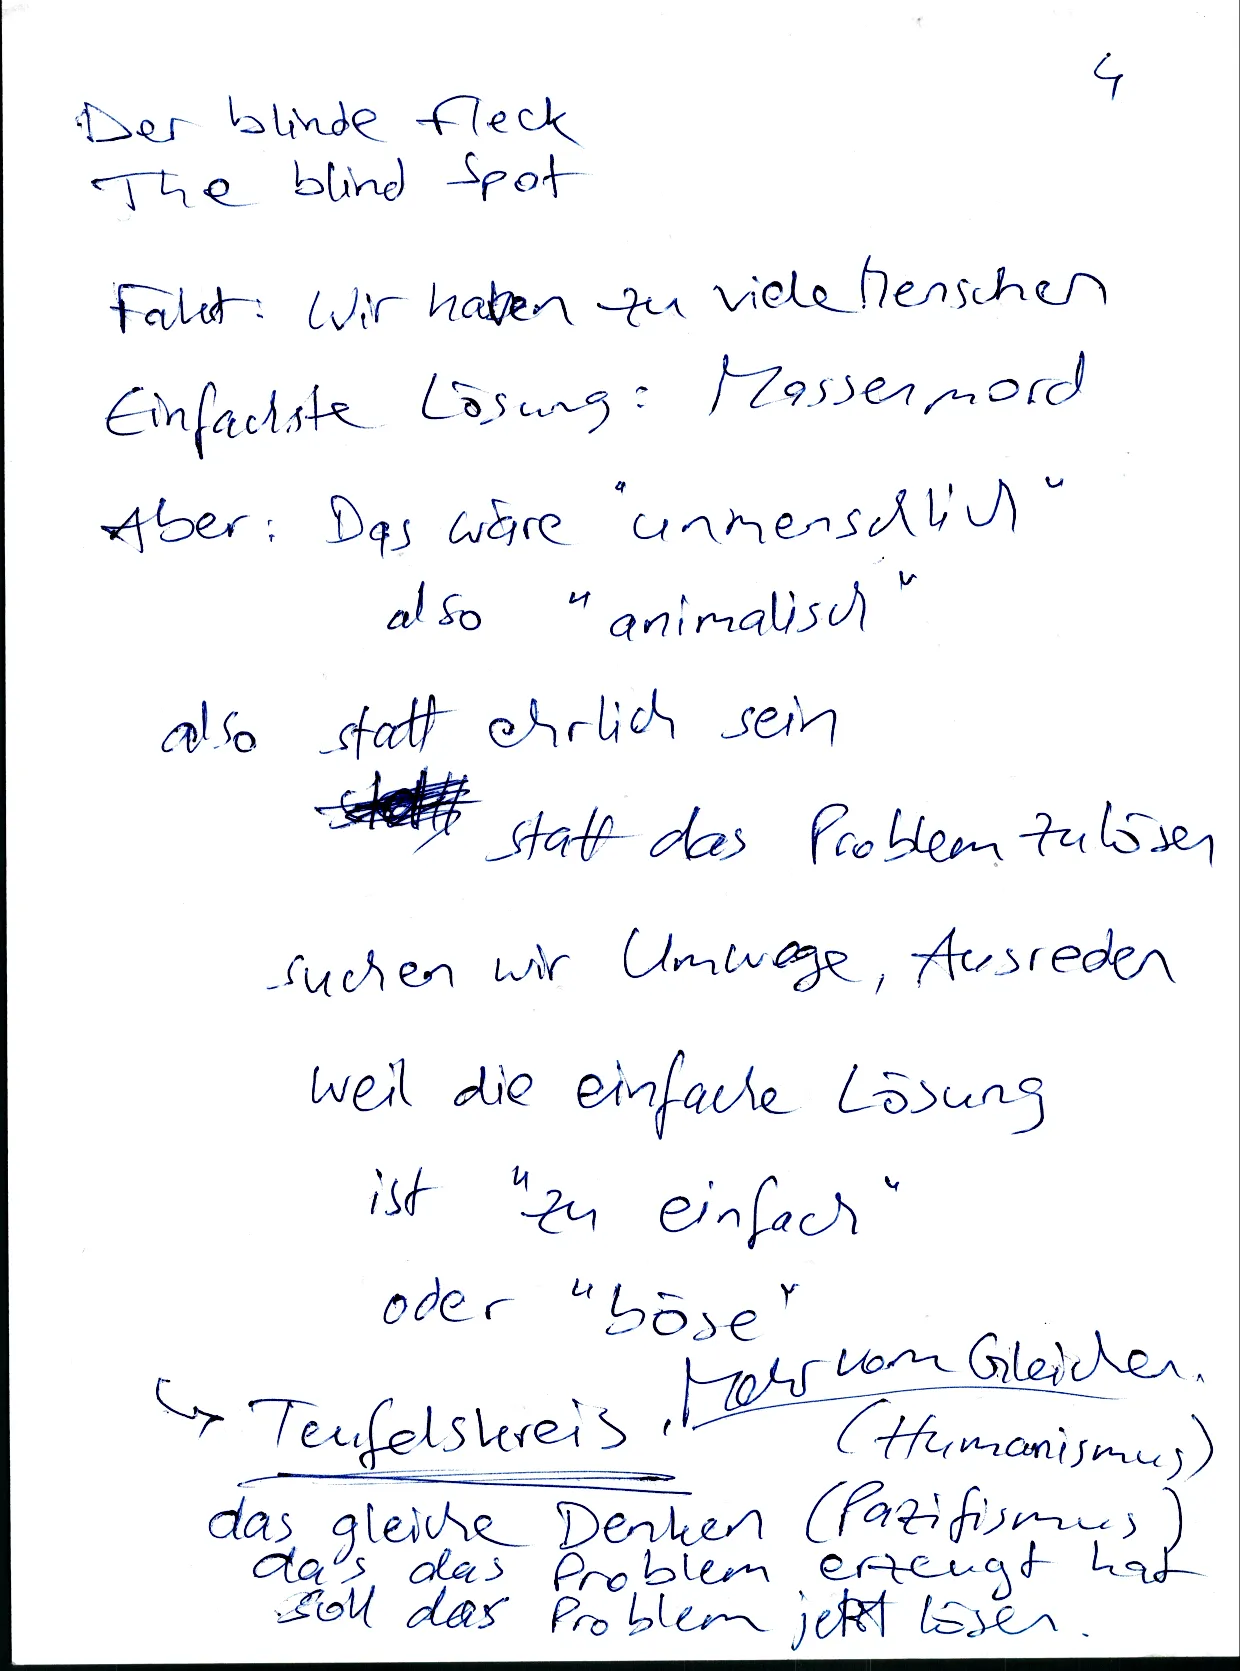 4
Der blinde Fleck
The blind Spot
Fakt: Wir haben zu viele Menschen
Einfachste Lösung: Massenmord
Aber: Das wäre "unmenschlich"
also "animalisch"
also statt ehrlich sein
statt das Problem zu lösen
suchen wir Umwege, Ausreden
weil die einfache Lösung
ist "zu einfach"
oder "böse"
↳ Teufelskreis, Mehr vom Gleichen.
(Humanismus)
das gleiche Denken (Pazifismus)
das das Problem erzeugt hat
soll das Problem jetzt lösen.